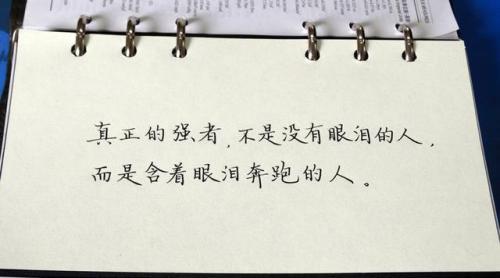 真正的强者,不是没有眼泪的人,
而是含着眼泪奔跑的人。